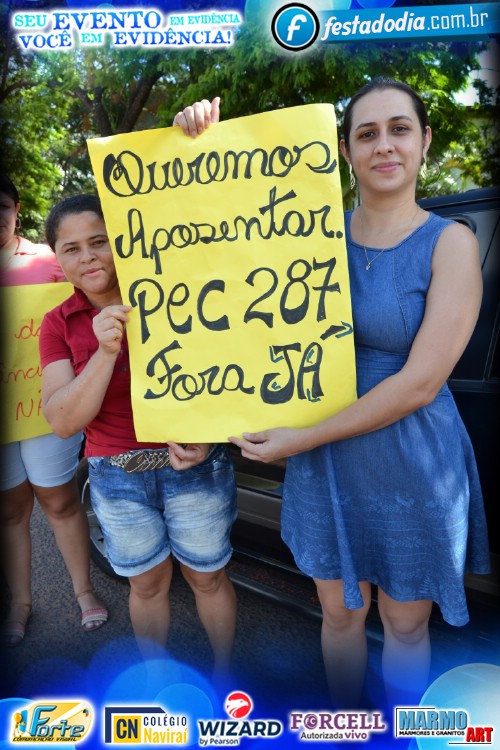 SEU EVENTO EM EVIDÊNCIA
VOCÊ EM EVIDÊNCIA!
festadodia.com.br
Queremos
Aposentar.
PEC 287
Fora JÁ
Forte
COMUNICAÇÃO VISUAL
CN COLÉGIO
Naviraí
WIZARD
by Pearson
FORCELL
Autorizada vivo
MARMO
MÁRMORES E GRANITOS ART